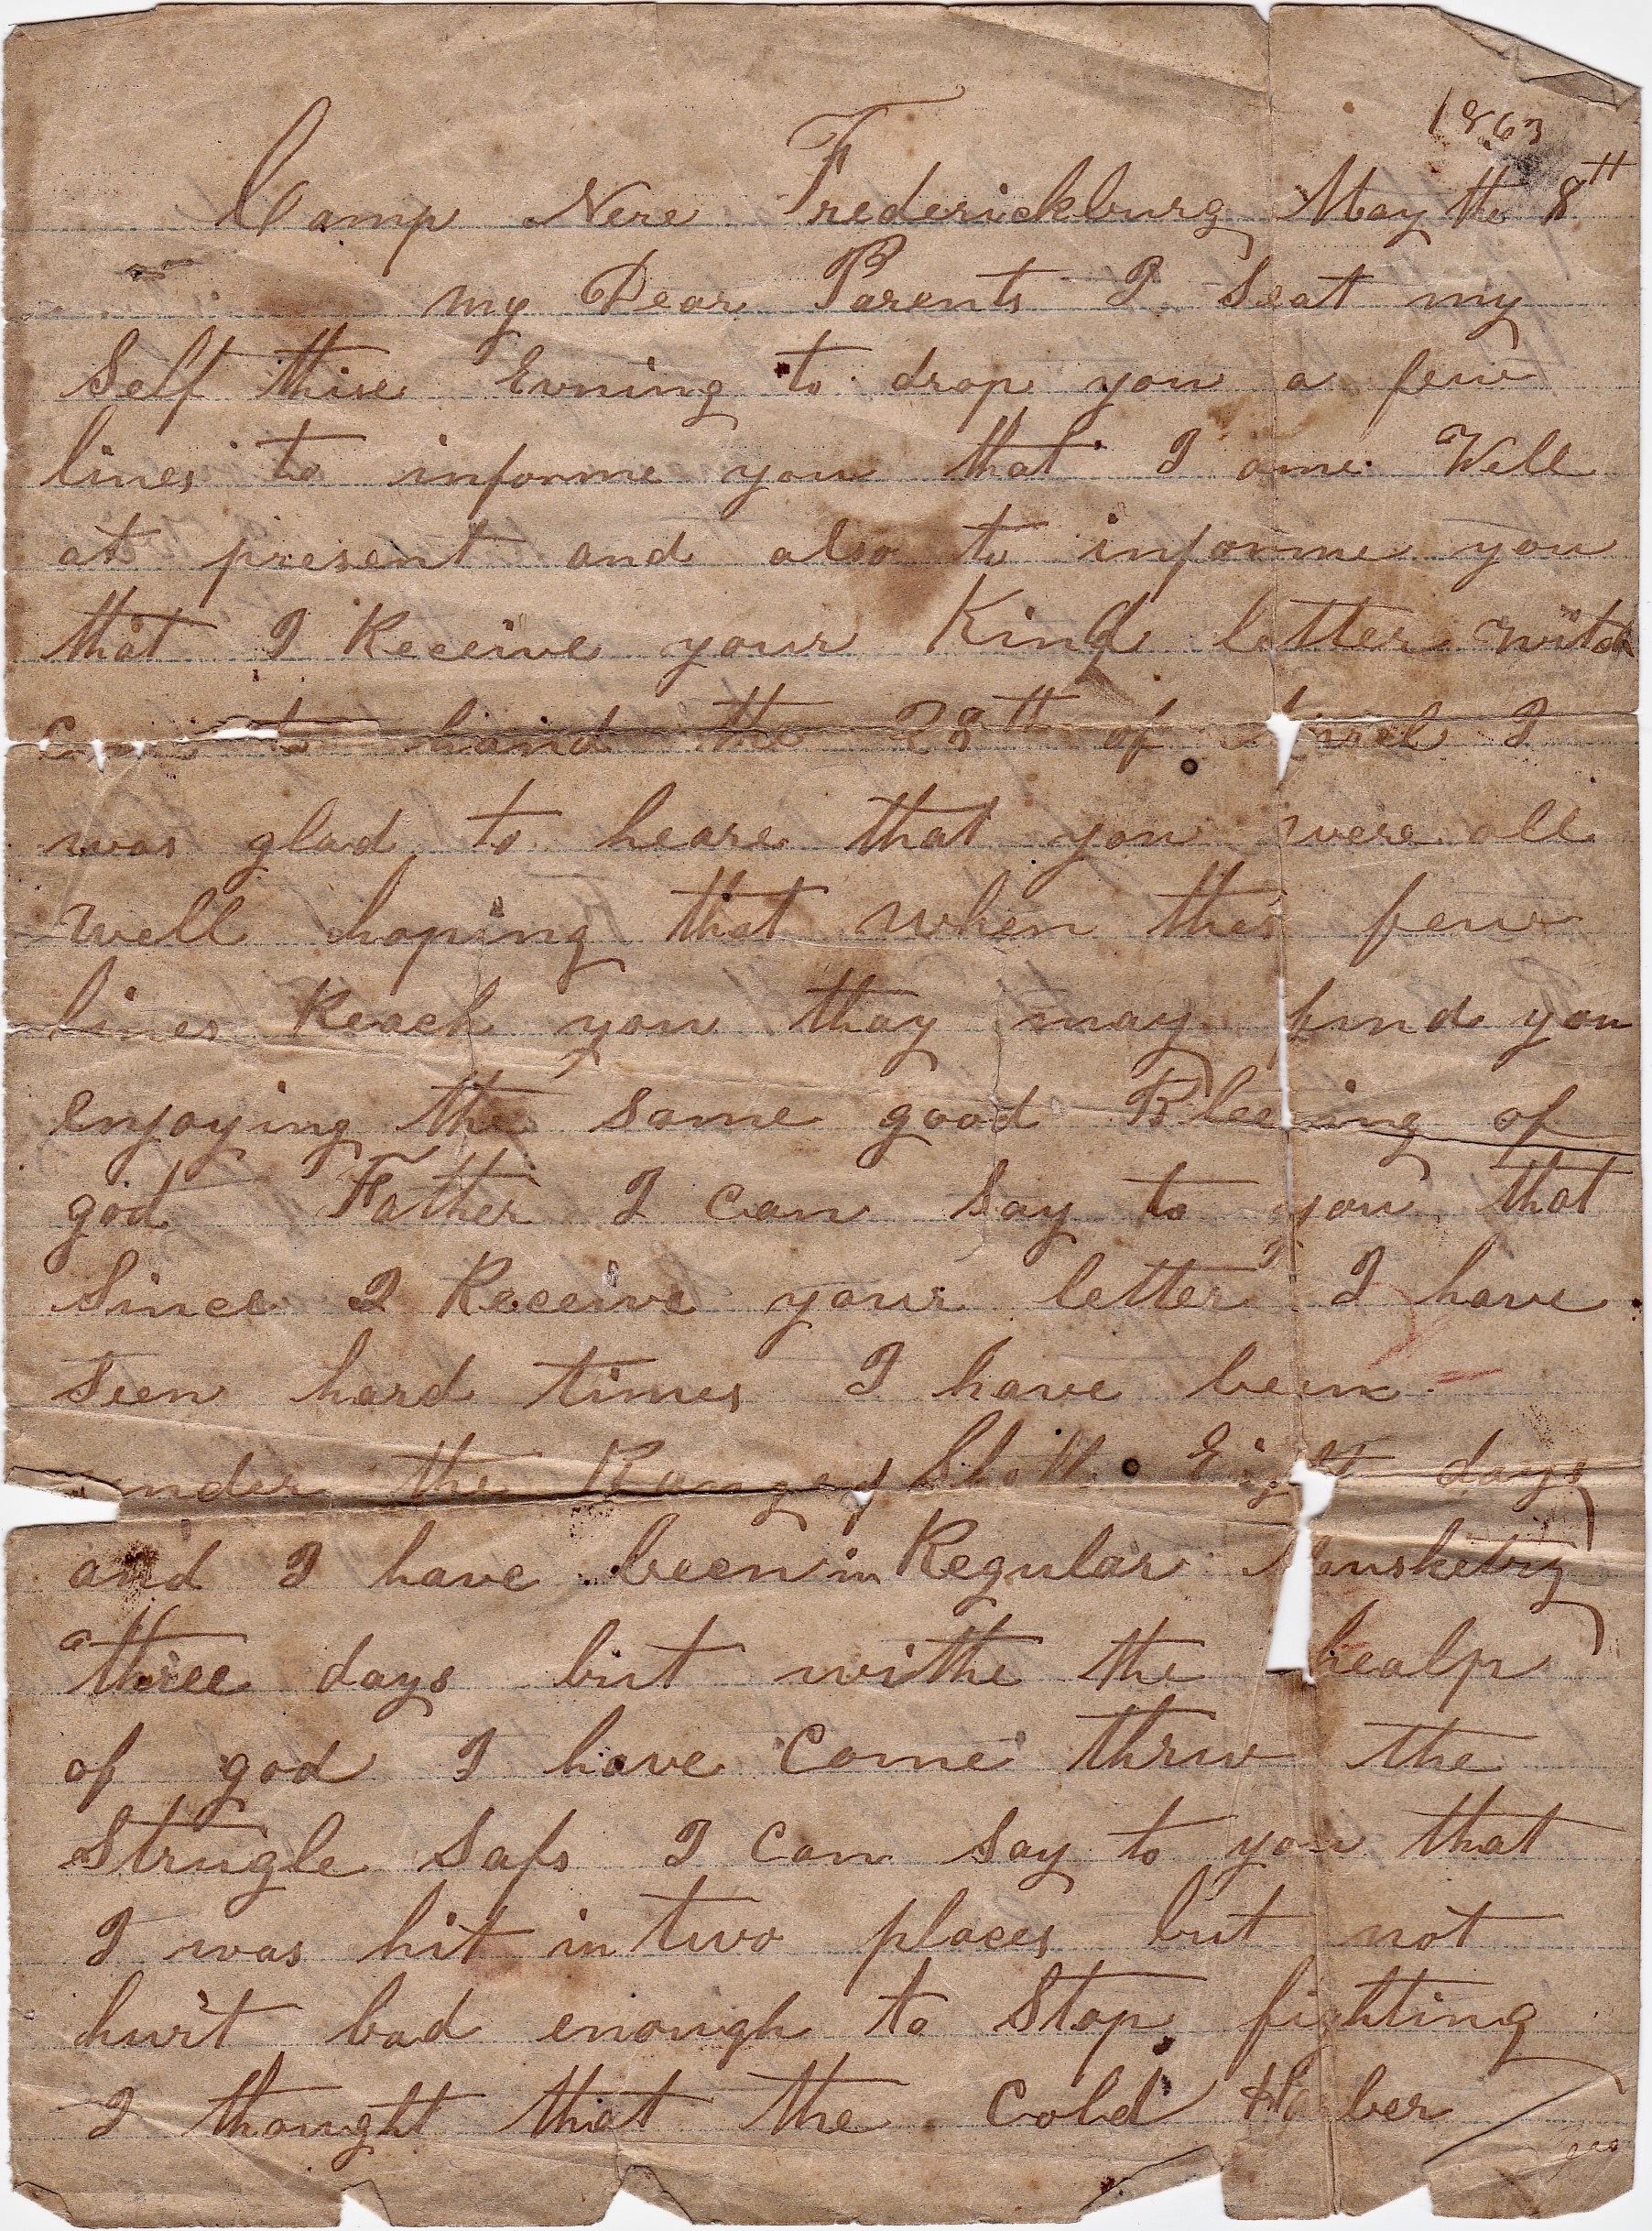 1863
Camp Nere Frederickburg May the 8th
my Dear Parents I Seat my
Self thise Evning to drop you a few
lines to informe you that I ame Well
at present and also to informe you
that I Receive your Kind letter witch
to hand the 28th of Aprel I
was glad to heare that you were all
well hoping that when thes few
lines Reach you thay may find you
enjoying the same good Bleeing of
god Father I can say to you that
Since I Receive your letter I have
seen hard times I have been
under the Range of Shell Eight days
and I have been in Regular Musketry
three days but withe the healp
of god I have Come thrw the
Strugle Safs I Can say to you that
I was hit in two places but not
hurt bad enough to Stop fighting
I thought that the Cold Harber